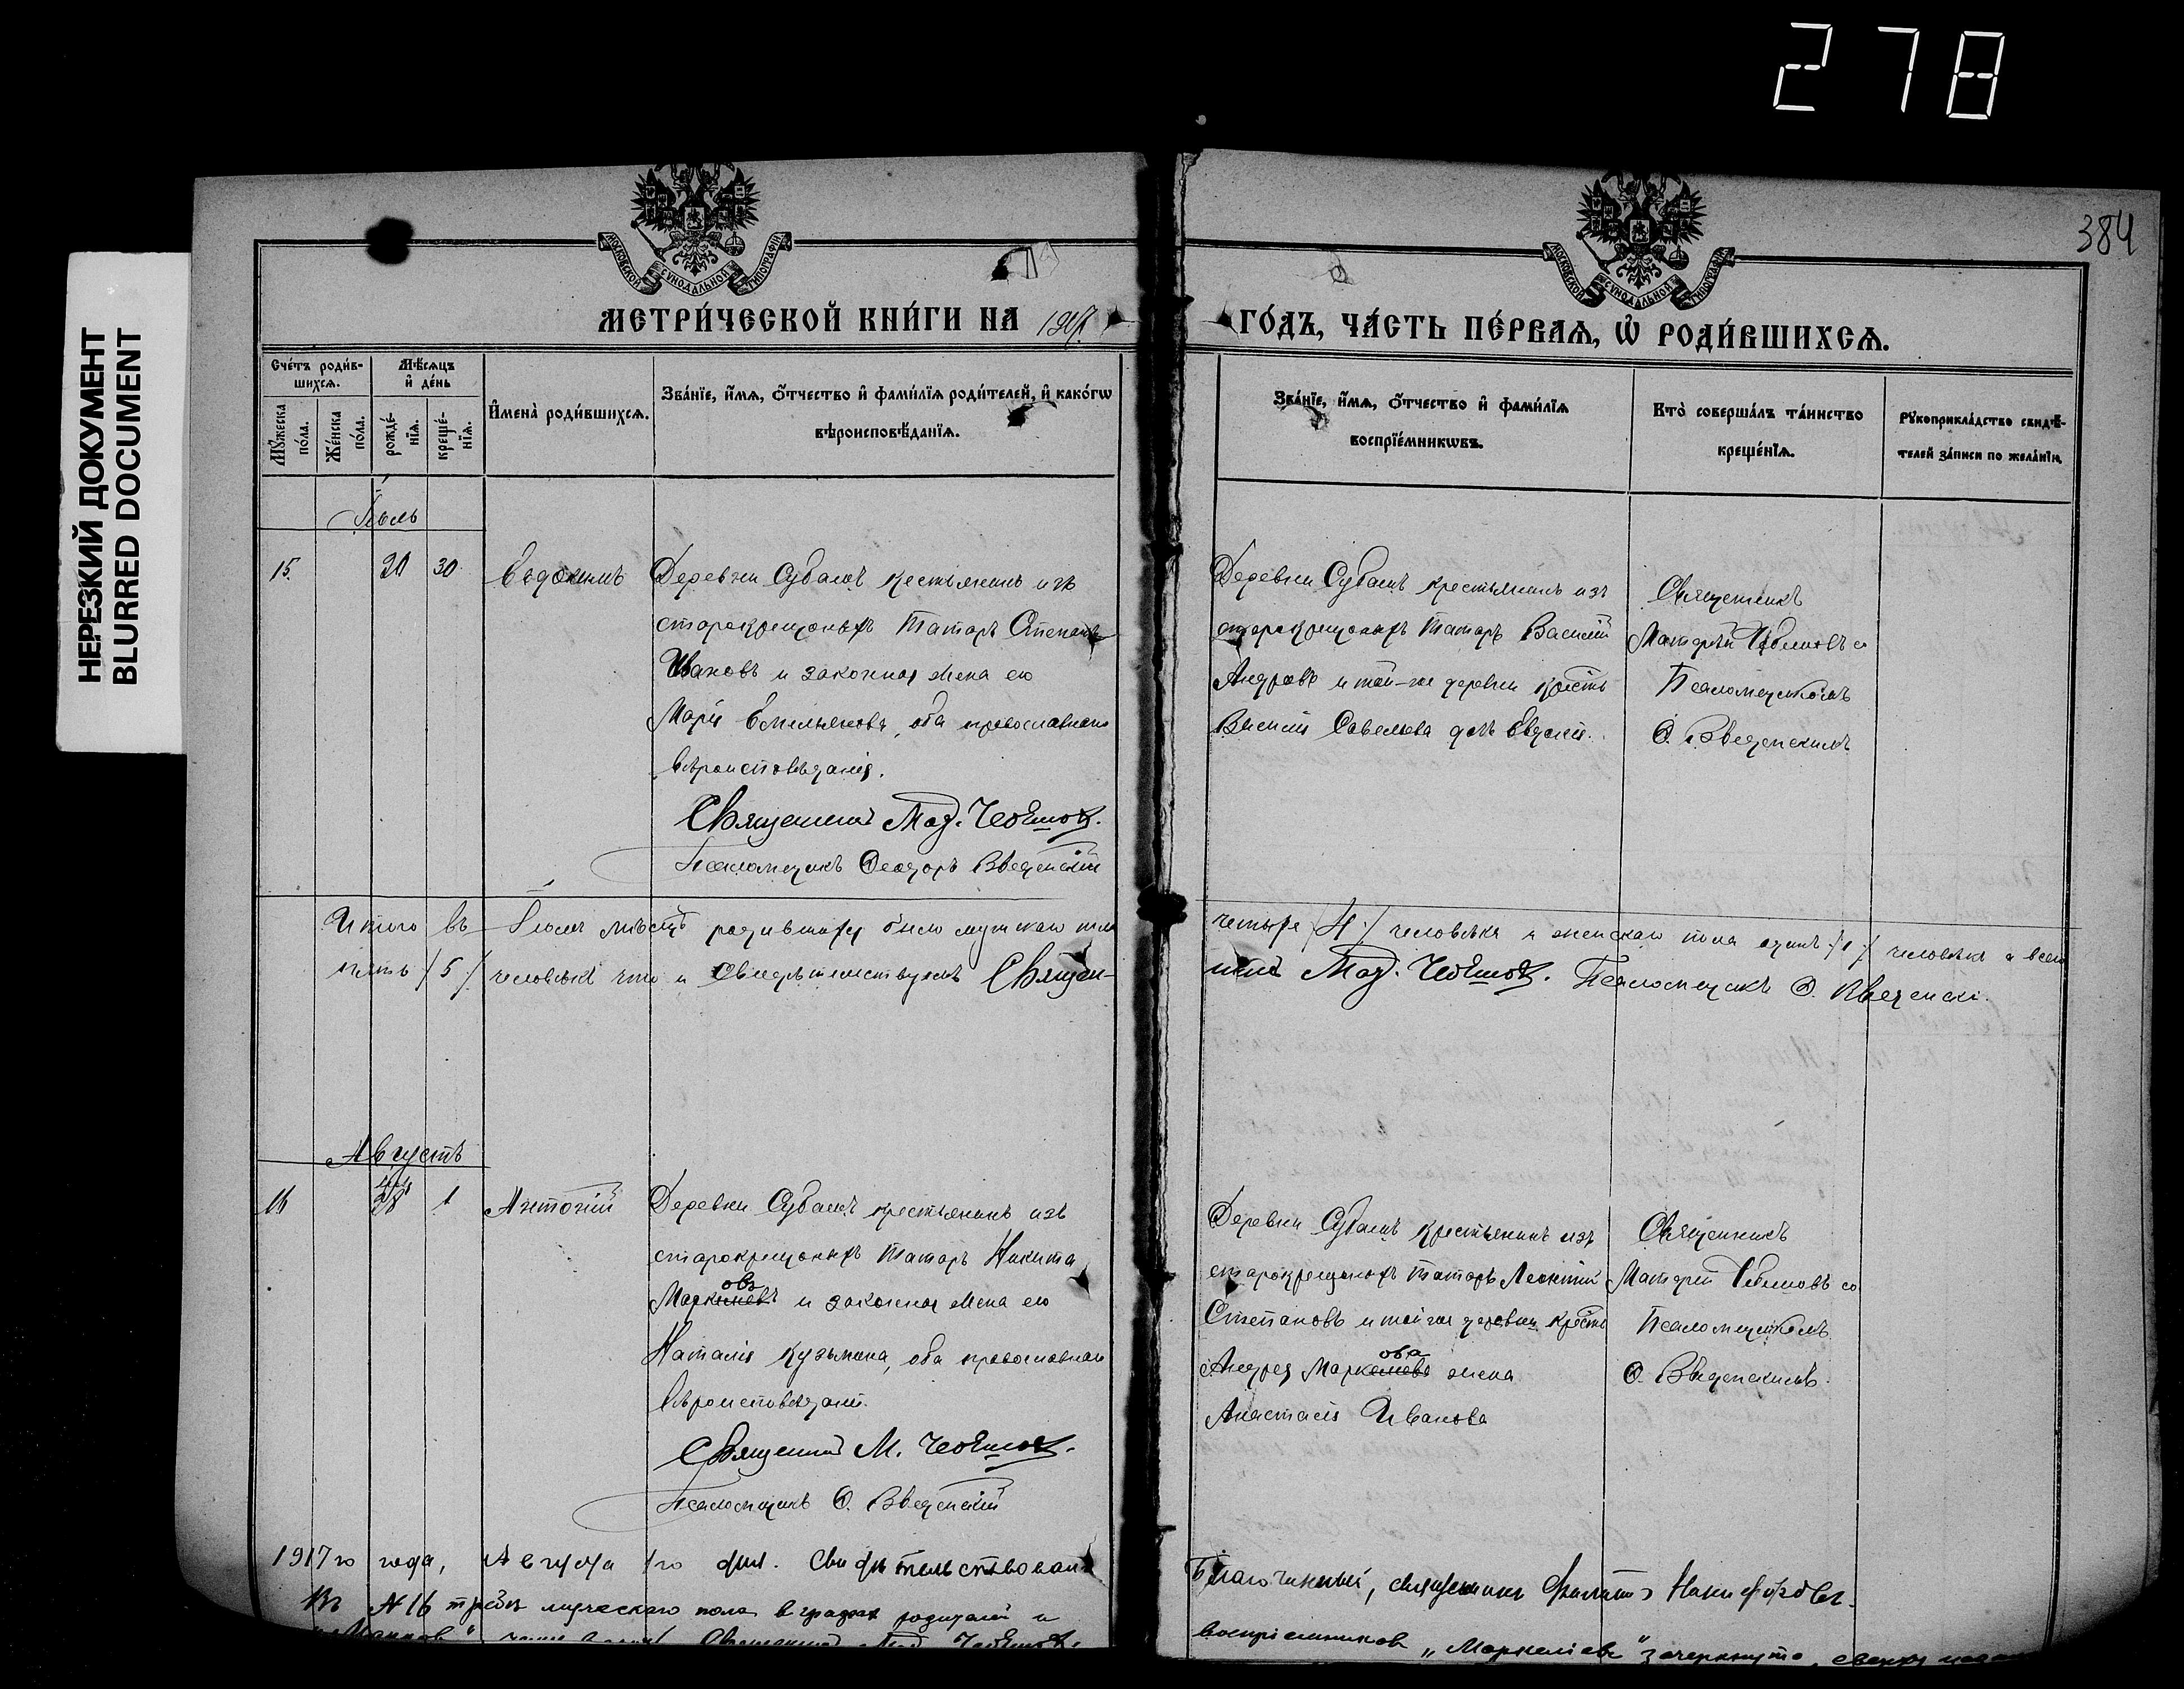 278
384
НЕРЕЗКИЙ ДОКУМЕНТ
BLURRED DOCUMENT
МОСКОВСКОЙ СѴНОДАЛЬНОЙ ТИПОГРАФІИ
МОСКОВСКОЙ СѴНОДАЛЬНОЙ ТИПОГРАФІИ
МЕТРИ́ЧЕСКОЙ КНИ́ГИ НА 1917 ГО́ДЪ, ЧА́СТЬ ПЕ́РВАѦ, Ѡ҆ РОДИ́ВШИХСѦ.
Сче́тъ роди́в-
шихсѧ.
Мꙋ́жеска по́ла.
Же́нска по́ла.
Мѣ́сѧцъ
и҆ де́нь
рожде́-
нїѧ.
креще́-
нїѧ.
И҆мена̀ роди́вшихсѧ.
Зва́нїе, и҆́мѧ, ѻ҆́тчество и҆ фами́лїѧ роди́телей, и҆ како́гѡ
вѣроисповѣ́данїѧ.
Зва́нїе, и҆́мѧ, ѻ҆́тчество и҆ фами́лїѧ
воспрїе́мникѡвъ.
Кто̀ соверша́лъ та́инство
креще́нїѧ.
Рꙋкоприкла́дство свидѣ́-
телей за́писи по жела́нїю.
Іюль
15. 30 Евдокимъ
Деревни Субашъ крестьянинъ изъ
старокрещеныхъ татаръ Степанъ
Ивановъ и законная жена его
Марія Емельянова, оба православнаго
вѣроисповѣданія.
Священникъ Мат. Чебешовъ.
Псаломщикъ Ѳеодоръ Введенскій
Деревни Субашъ крестьянинъ изъ
старокрещеныхъ татаръ Василій
и той-же деревни крест.
Василія Савельева дочь
Священникъ
Матѳей со
Псаломщикомъ
Ѳ. Введенскимъ
Итого въ Іюлѣ мѣсяцѣ родившихся было мужского пола четыре /4/ человѣка и женскаго пола одинъ /1/ человѣкъ а всего
пять /5/ человѣкъ что и свидѣтельствуемъ Священ-
никъ Мат. Чебешовъ. Псаломщикъ Ѳ. Введенскі.
Августъ
16 1 Антоній
Деревни Субашъ крестьянинъ изъ
старокрещеныхъ татаръ Никита
овъ
Маркеловъ и законная жена его
Наталія Кузьмина, оба православнаго
вѣроисповѣданія.
Священникъ М. Чебешовъ.
Псаломщикъ Ѳ. Введенскій
Деревни Субашъ крестьянинъ изъ
старокрещеныхъ татаръ Леонтій
Степановъ и той же деревни крест.
ова
Андрея жена
Анастасія Иванова
Священникъ
Матѳей со
Псаломщикомъ
Ѳ. Введенскимъ.
1917 го года, Августа 1 го дня. Свидѣтельствовалъ
Благочинный, священникъ Филиппъ Никифоровъ.
Въ №16 мужескаго пола въ графахъ родителей и
воспріемниковъ „Маркеліевъ" зачеркнуто, сверху